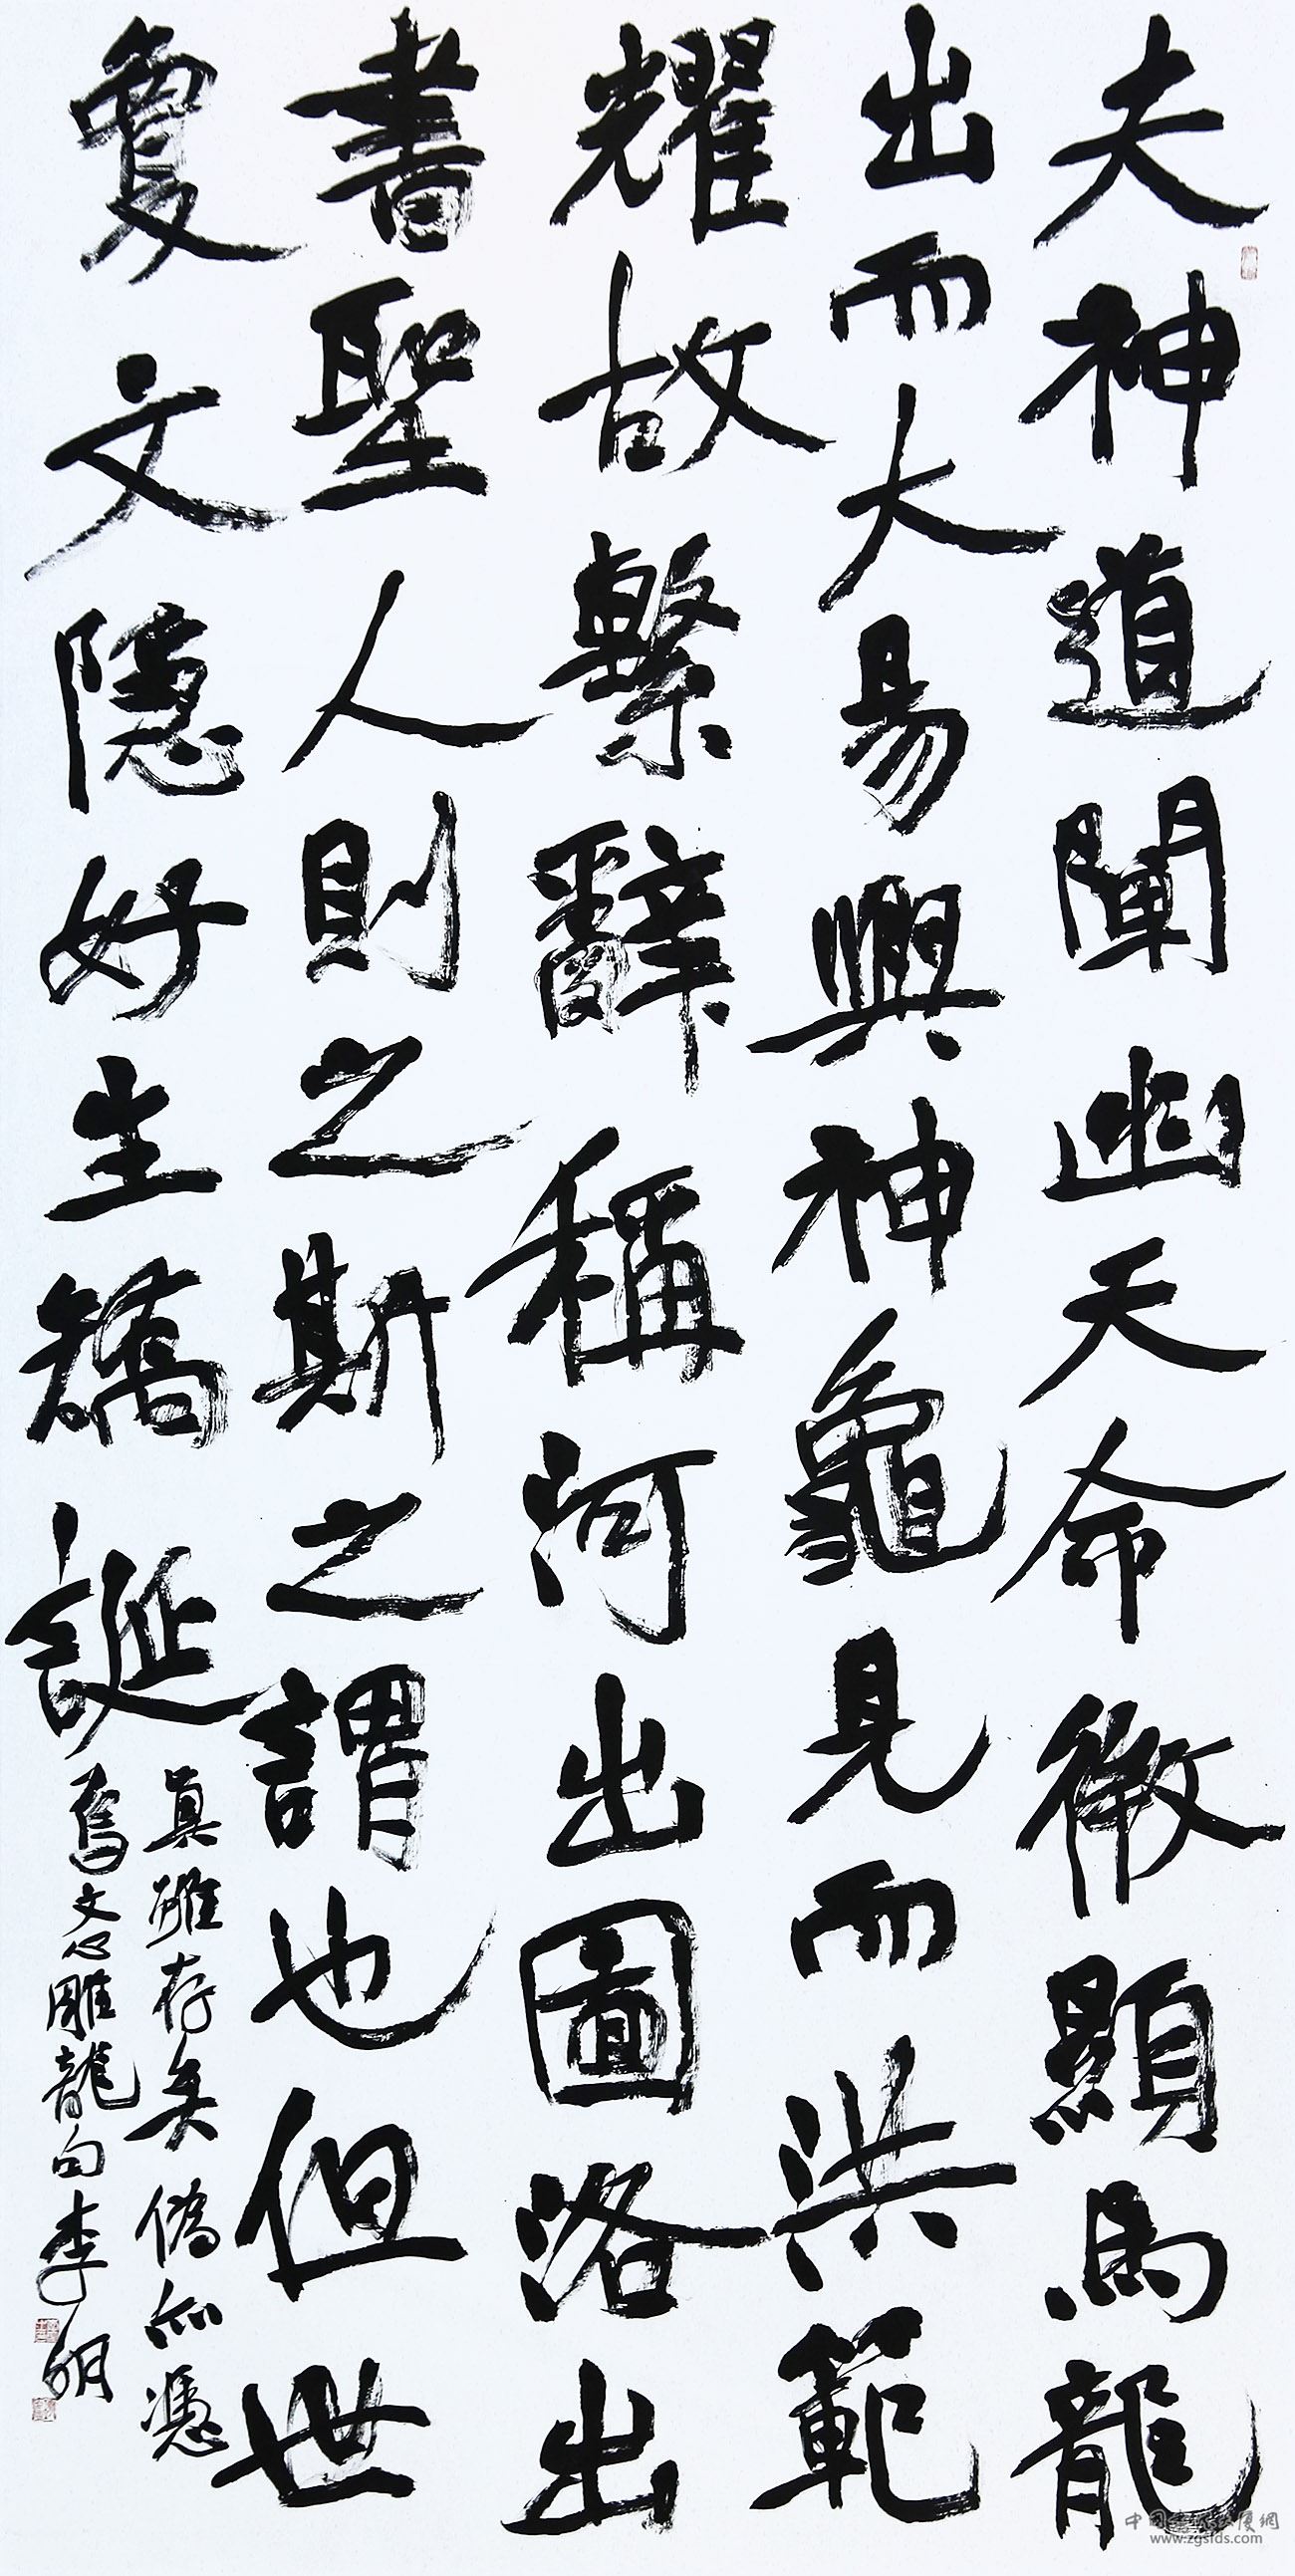 夫神道闡幽天命微顯馬龍
出而大易興神龜見而洪範
耀故繫辭稱河出圖洛出
書聖人則之斯之謂也但世
敻文隱好生矯誕
真雖存矣偽亦憑
焉文心雕龍句李明
www.zgsfds.com